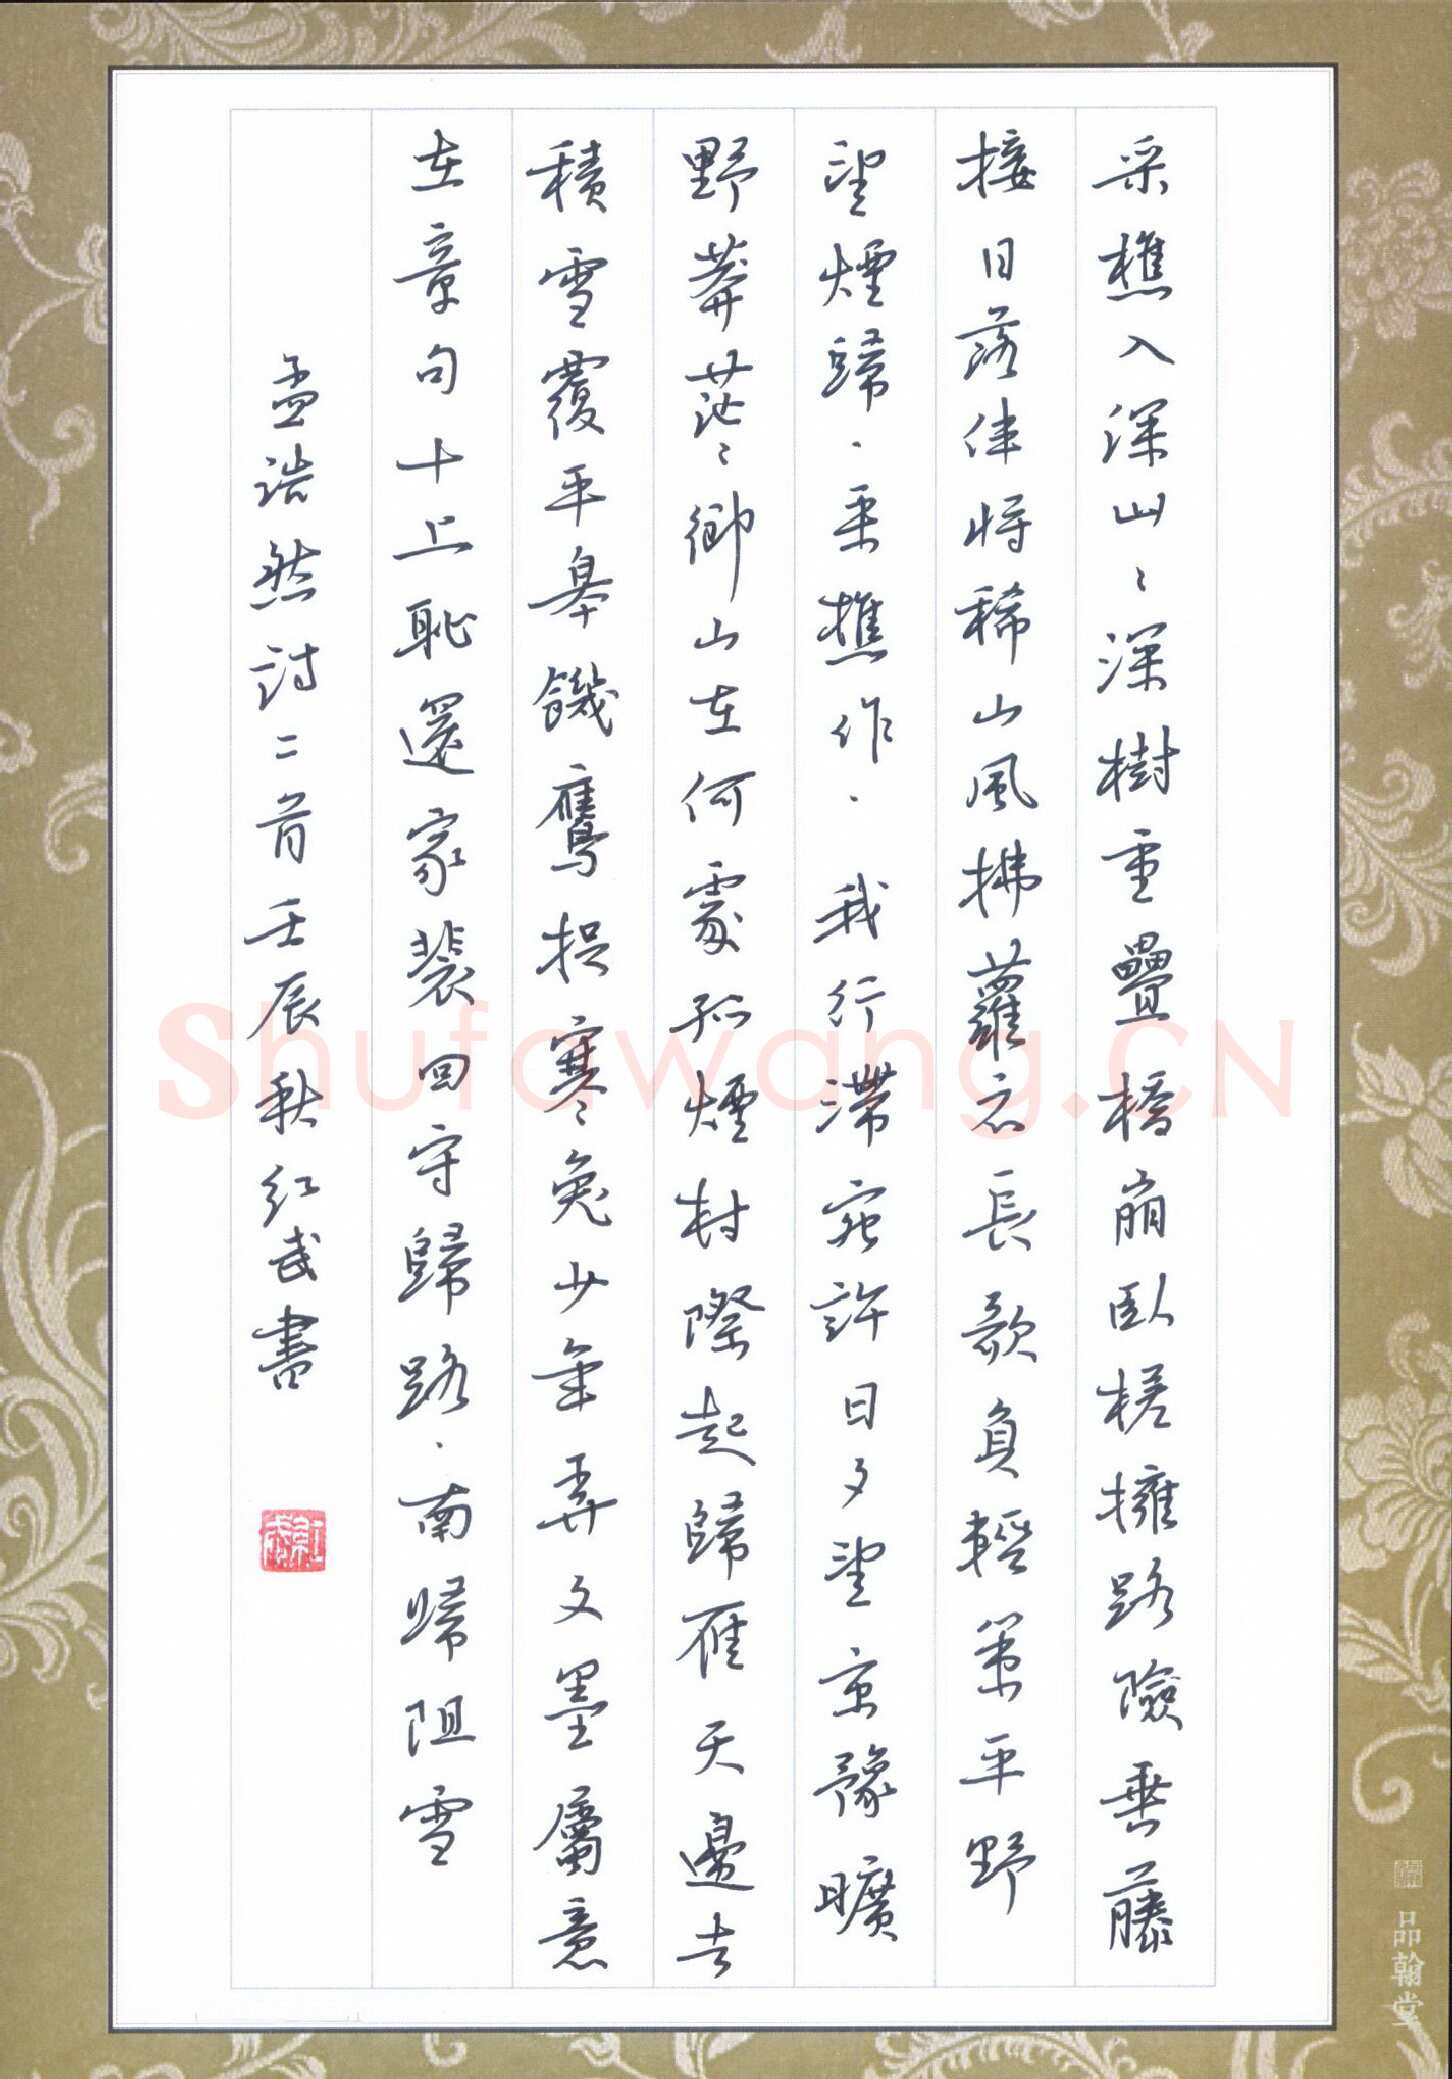 采樵入深山〻深樹重疊橋崩臥槎擁路險垂藤
接日落伴將稀山風拂蘿衣長歌負輕策平野
望煙歸·采樵作·我行滯宛許日夕望京豫曠
野莽茫〻鄉山在何處孤煙村際起歸雁天邊去
積雪覆平皋饑鷹捉寒兔少年弄文墨屬意
在章句十上恥還家裴回守歸路·南歸阻雪
孟浩然詩二首壬辰秋紅武書
Shufawang.CN
品翰堂